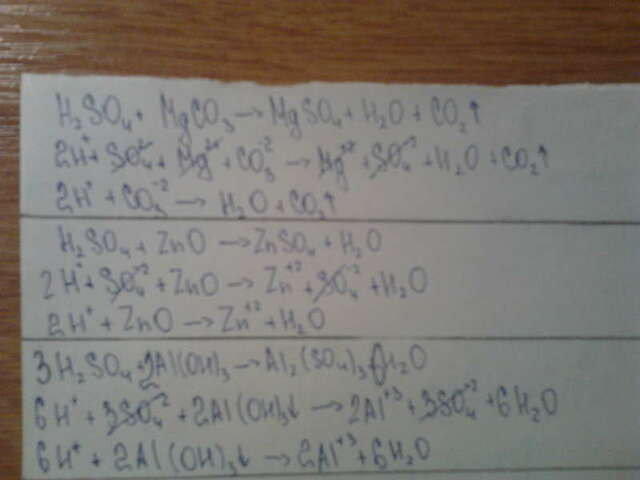 H₂SO₄ + MgCO₃ → MgSO₄ + H₂O + CO₂↑
2H⁺ + SO₄⁻² + Mg²⁺ + CO₃⁻² → Mg⁺² + SO₄⁻² + H₂O + CO₂↑
2H⁺ + CO₃⁻² → H₂O + CO₂↑
H₂SO₄ + ZnO → ZnSO₄ + H₂O
2H⁺ + SO₄⁻² + ZnO → Zn⁺² + SO₄⁻² + H₂O
2H⁺ + ZnO → Zn⁺² + H₂O
3H₂SO₄ + 2Al(OH)₃ → Al₂(SO₄)₃ 6H₂O
6H⁺ + 3SO₄⁻² + 2Al(OH)₃↓ → 2Al⁺³ + 3SO₄⁻² + 6H₂O
6H⁺ + 2Al(OH)₃↓ → 2Al⁺³ + 6H₂O